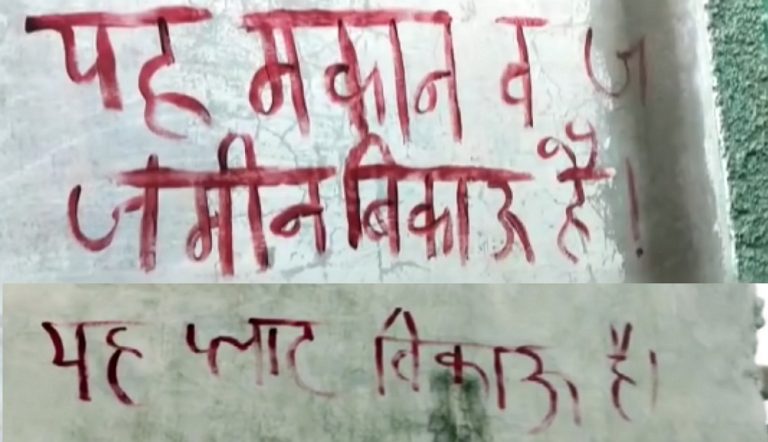 यह मकान व ज
जमीन बिकाऊ है।
यह प्लाट बिकाऊ है।